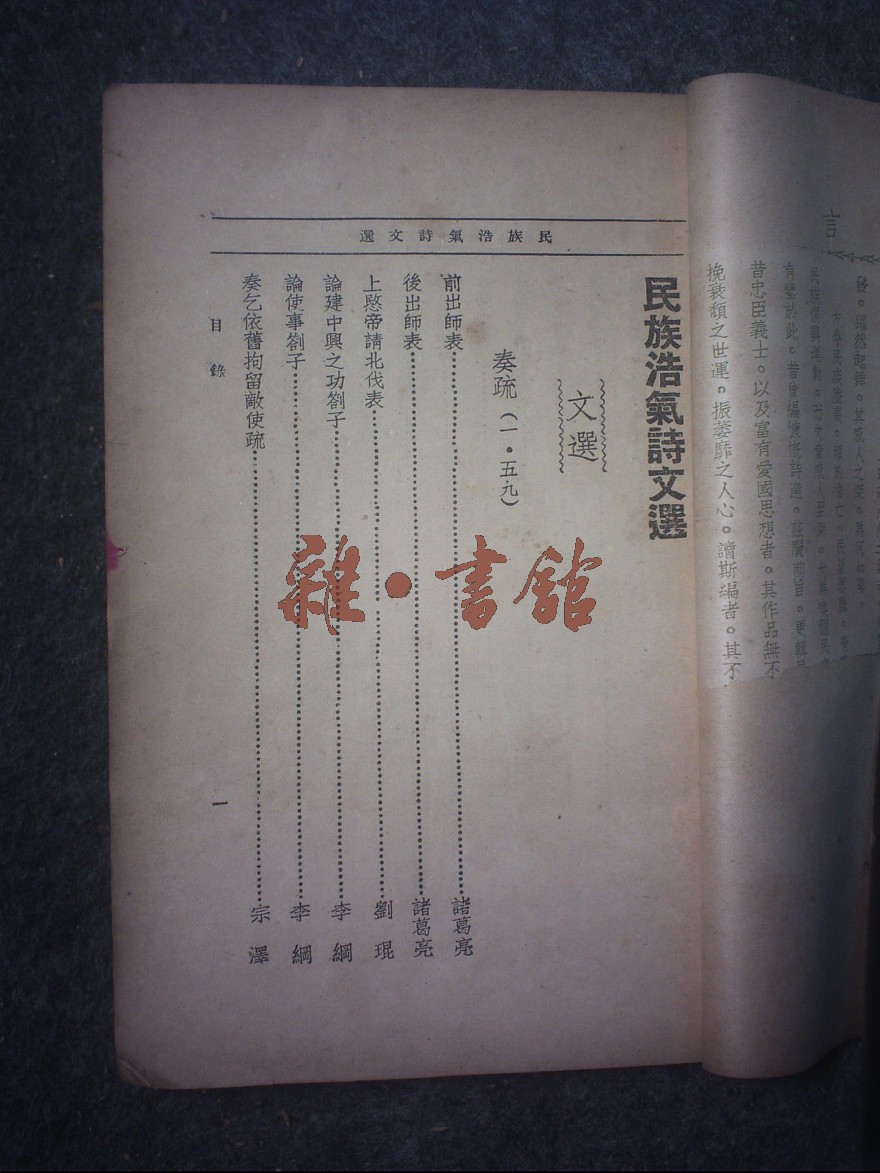 言
發。
昔忠臣義士。以及富有愛國思想者。其作品無不
挽衰頹之世運。振萎靡之人心。讀斯編者。其不
民族浩氣詩文選
民族浩氣詩文選
文選
奏疏（一·五九）
前出師表 諸葛亮
後出師表 諸葛亮
上愍帝請北伐表 劉琨
論建中興之功劄子 李綱
論使事劄子 李綱
奏乞依舊拘留敵使疏 宗澤
目錄
一
雜·書館